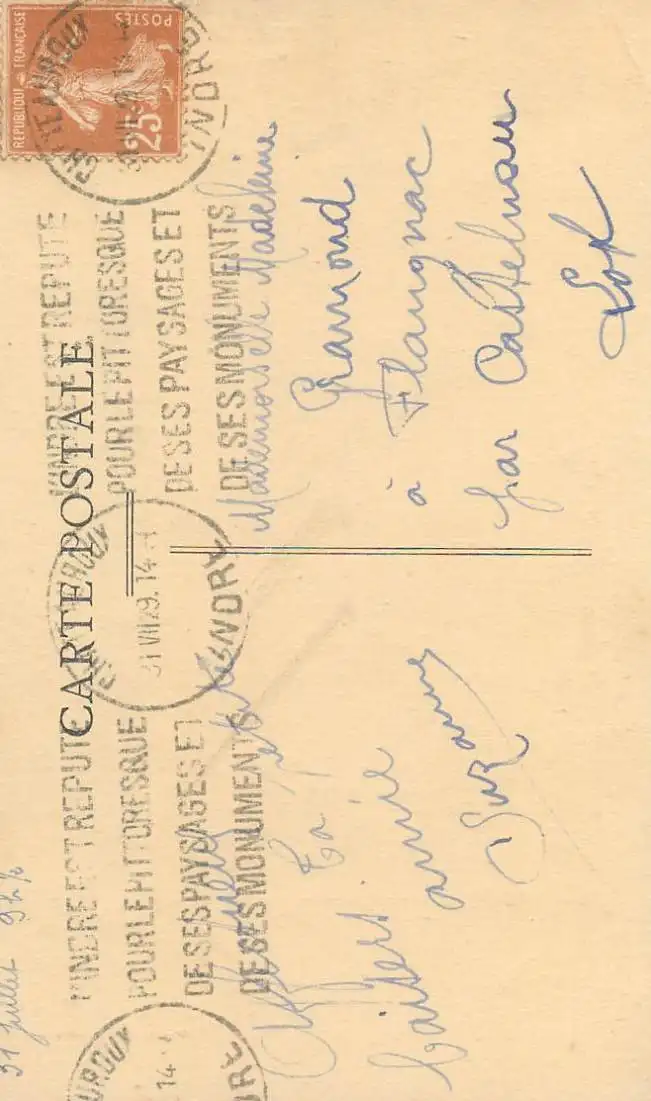 CARTE POSTALE
REPUBLIQUE FRANÇAISE
POSTES
25
CHATEAUROUX
31 VII 29
INDRE
L'INDRE EST REPUTE
POUR LE PITTORESQUE
DE SES PAYSAGES ET
DE SES MONUMENTS
CHATEAUROUX
31 VII 29. 14
INDRE
L'INDRE EST REPUTE
POUR LE PITTORESQUE
DE SES PAYSAGES ET
DE SES MONUMENTS
31 juillet
baisers
ta
amie
Suzanne
Mademoiselle Madeleine
Gramond
à Flaugnac
par Castelnau
Lot